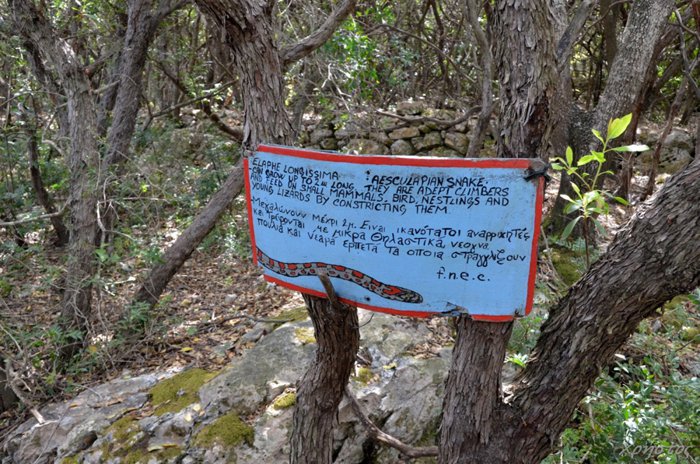 ELAPHE LONGISSIMA : AESCULAPIAN SNAKE.
CAN GROW UP TO 2m LONG. THEY ARE ADEPT CLIMBERS
AND FEED ON SMALL MAMMALS, BIRD, NESTLINGS AND
YOUNG LIZARDS BY CONSTRICTING THEM.
Μεγαλώνουν μέχρι 2μ. Είναι ικανότατοι αναρριχητές
και τρέφονται με μικρά θηλαστικά, νεογνά
πουλιά και νεαρά ερπετά τα οποία στραγγαλίζουν
f.n.e.c.